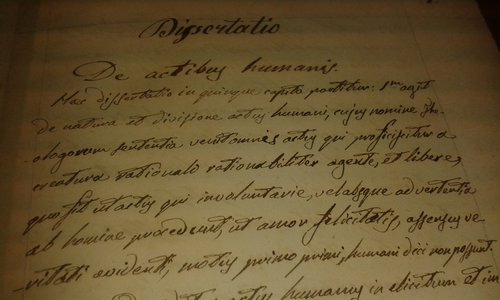 Dissertatio
De actibus humanis.
Hæc dissertatio in quinque caputa partitur: 1.m agit
de natura et divisione actus humani, cujus nomine the-
ologorum sententia venit omnis actus qui proficiscitur a
creatura rationale rationabiliter agente, et libere,
quo fit ut actus qui involuntarie, vel absque advertentia
ab homine procedunt, ut amor felicitatis, assensus ve-
ritati evidenti, motus primo primi, humani dici non possunt.
actus humanus in elicitum et im